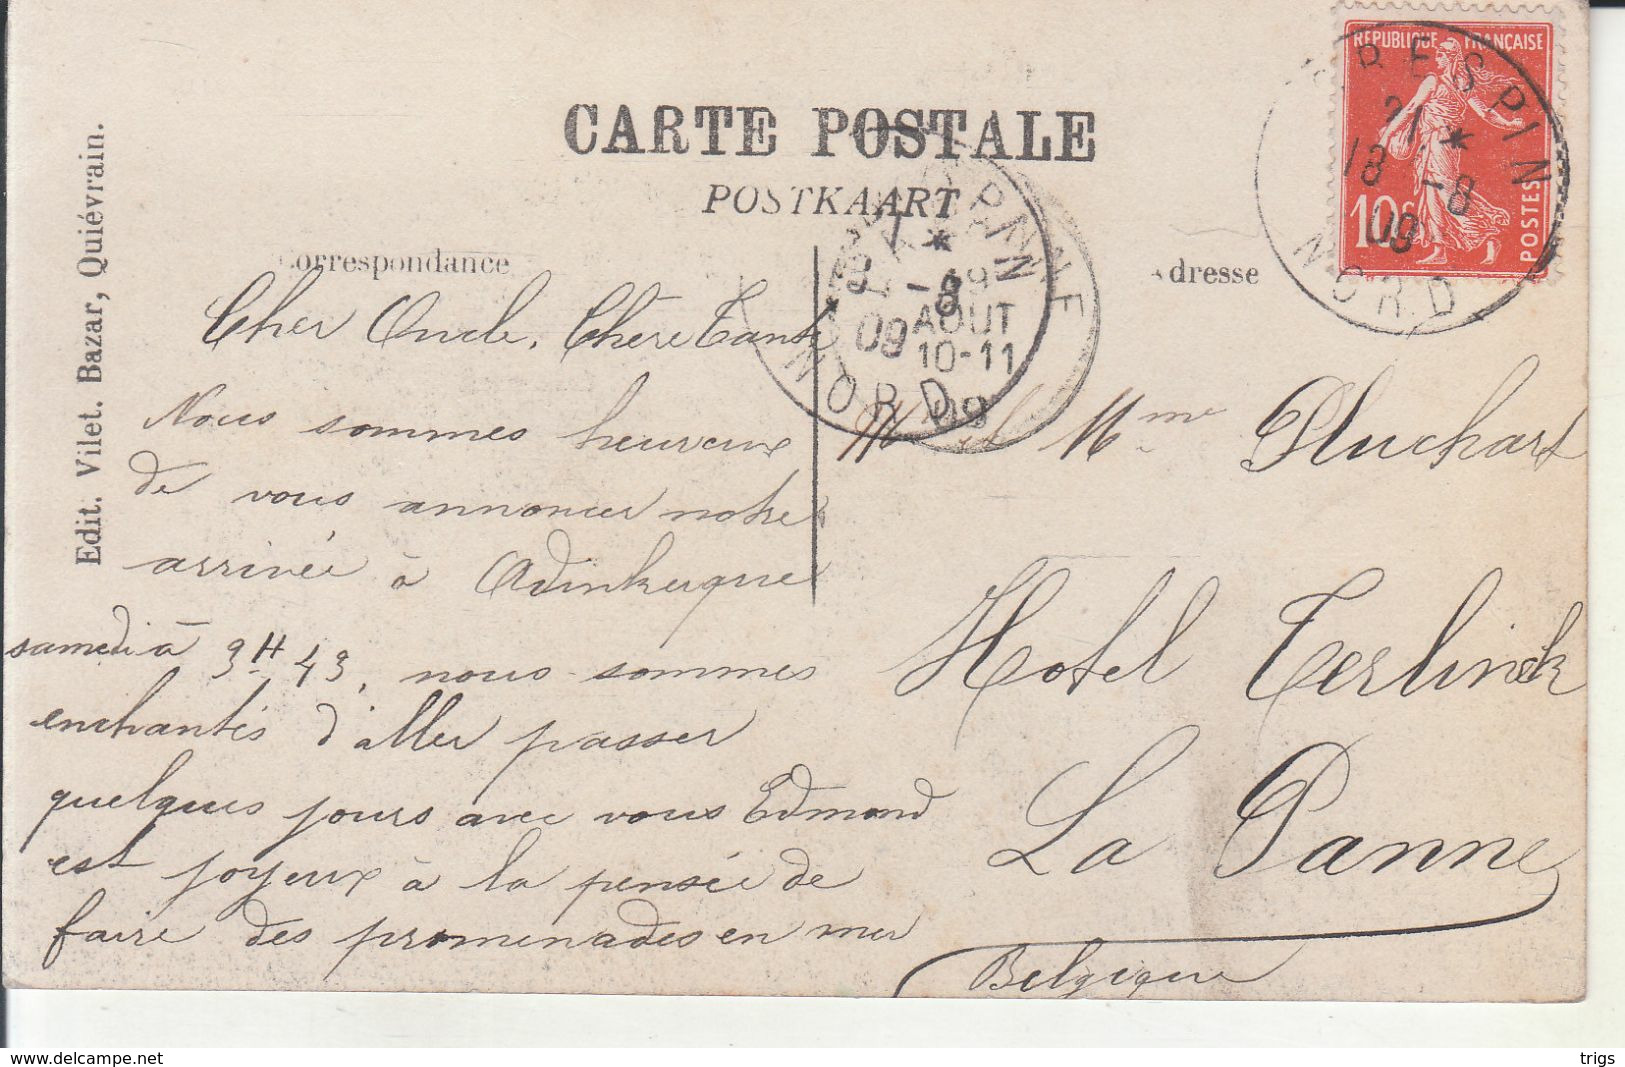 CARTE POSTALE
POSTKAART
Correspondance
Adresse
Edit. Vilet. Bazar, Quiévrain.
RÉPUBLIQUE FRANÇAISE
10c
POSTES
CRESPIN
21 *
18 -8
09
NORD
*
18 -8
09
NORD
PANNE
19
AOUT
10-11
09
Cher Oncle, Chère Tante
Nous sommes heureux
de vous annoncer notre
arrivée à Adinkerque
samedi à 3H 43, nous sommes
enchantés d'aller passer
quelques jours avec vous Edmond
est joyeux à la pensée de
faire des promenades en mer
M et Mme Pluchart
Hotel Terlinck
La Panne
Belgique
www.delcampe.net
trigs